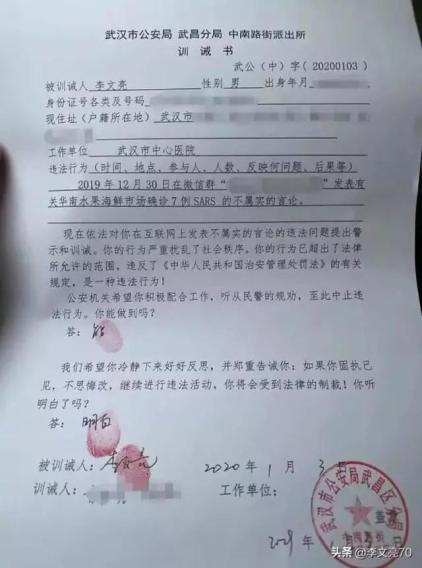 武汉市公安局 武昌分局 中南路街派出所
训 诫 书
武公（中）字（20200103）
被训诫人 李文亮 性别 男 出身年月
身份证号各类及号码
现住址（户籍所在地） 武汉市
工作单位 武汉市中心医院
违法行为（时间、地点、参与人、人数、反映何问题、后果等）
2019年12月30日在微信群“ ”发表有
关华南水果海鲜市场确诊7例SARS的不属实的言论。
现在依法对你在互联网上发表不属实的言论的违法问题提出警
示和训诫。你的行为严重扰乱了社会秩序。你的行为已超出了法律
所允许的范围，违反了《中华人民共和国治安管理处罚法》的有关
规定，是一种违法行为！
公安机关希望你积极配合工作，听从民警的规劝，至此中止违
法行为。你能做到吗？
答：能
我们希望你冷静下来好好反思，并郑重告诫你：如果你固执己
见，不思悔改，继续进行违法活动，你将会受到法律的制裁！你听
明白了吗？
答：明白
被训诫人：李文亮 2020年1月3日
训诫人： 工作单位：
武汉市公安局武昌区
头条@李文亮70